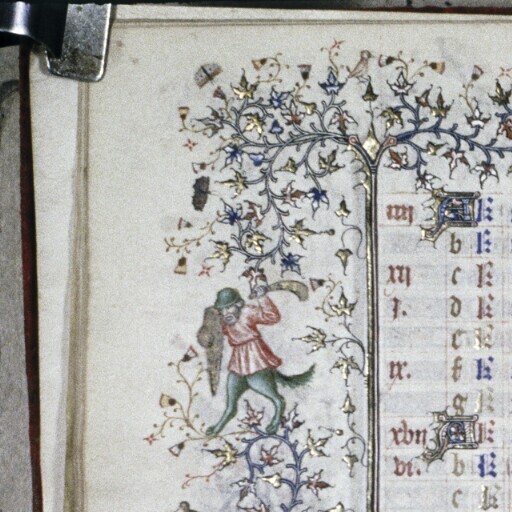 iiij A k
b k
xij c k
i. d k
e k
ix. f k
g k
xvij A k
vi. b k
c k